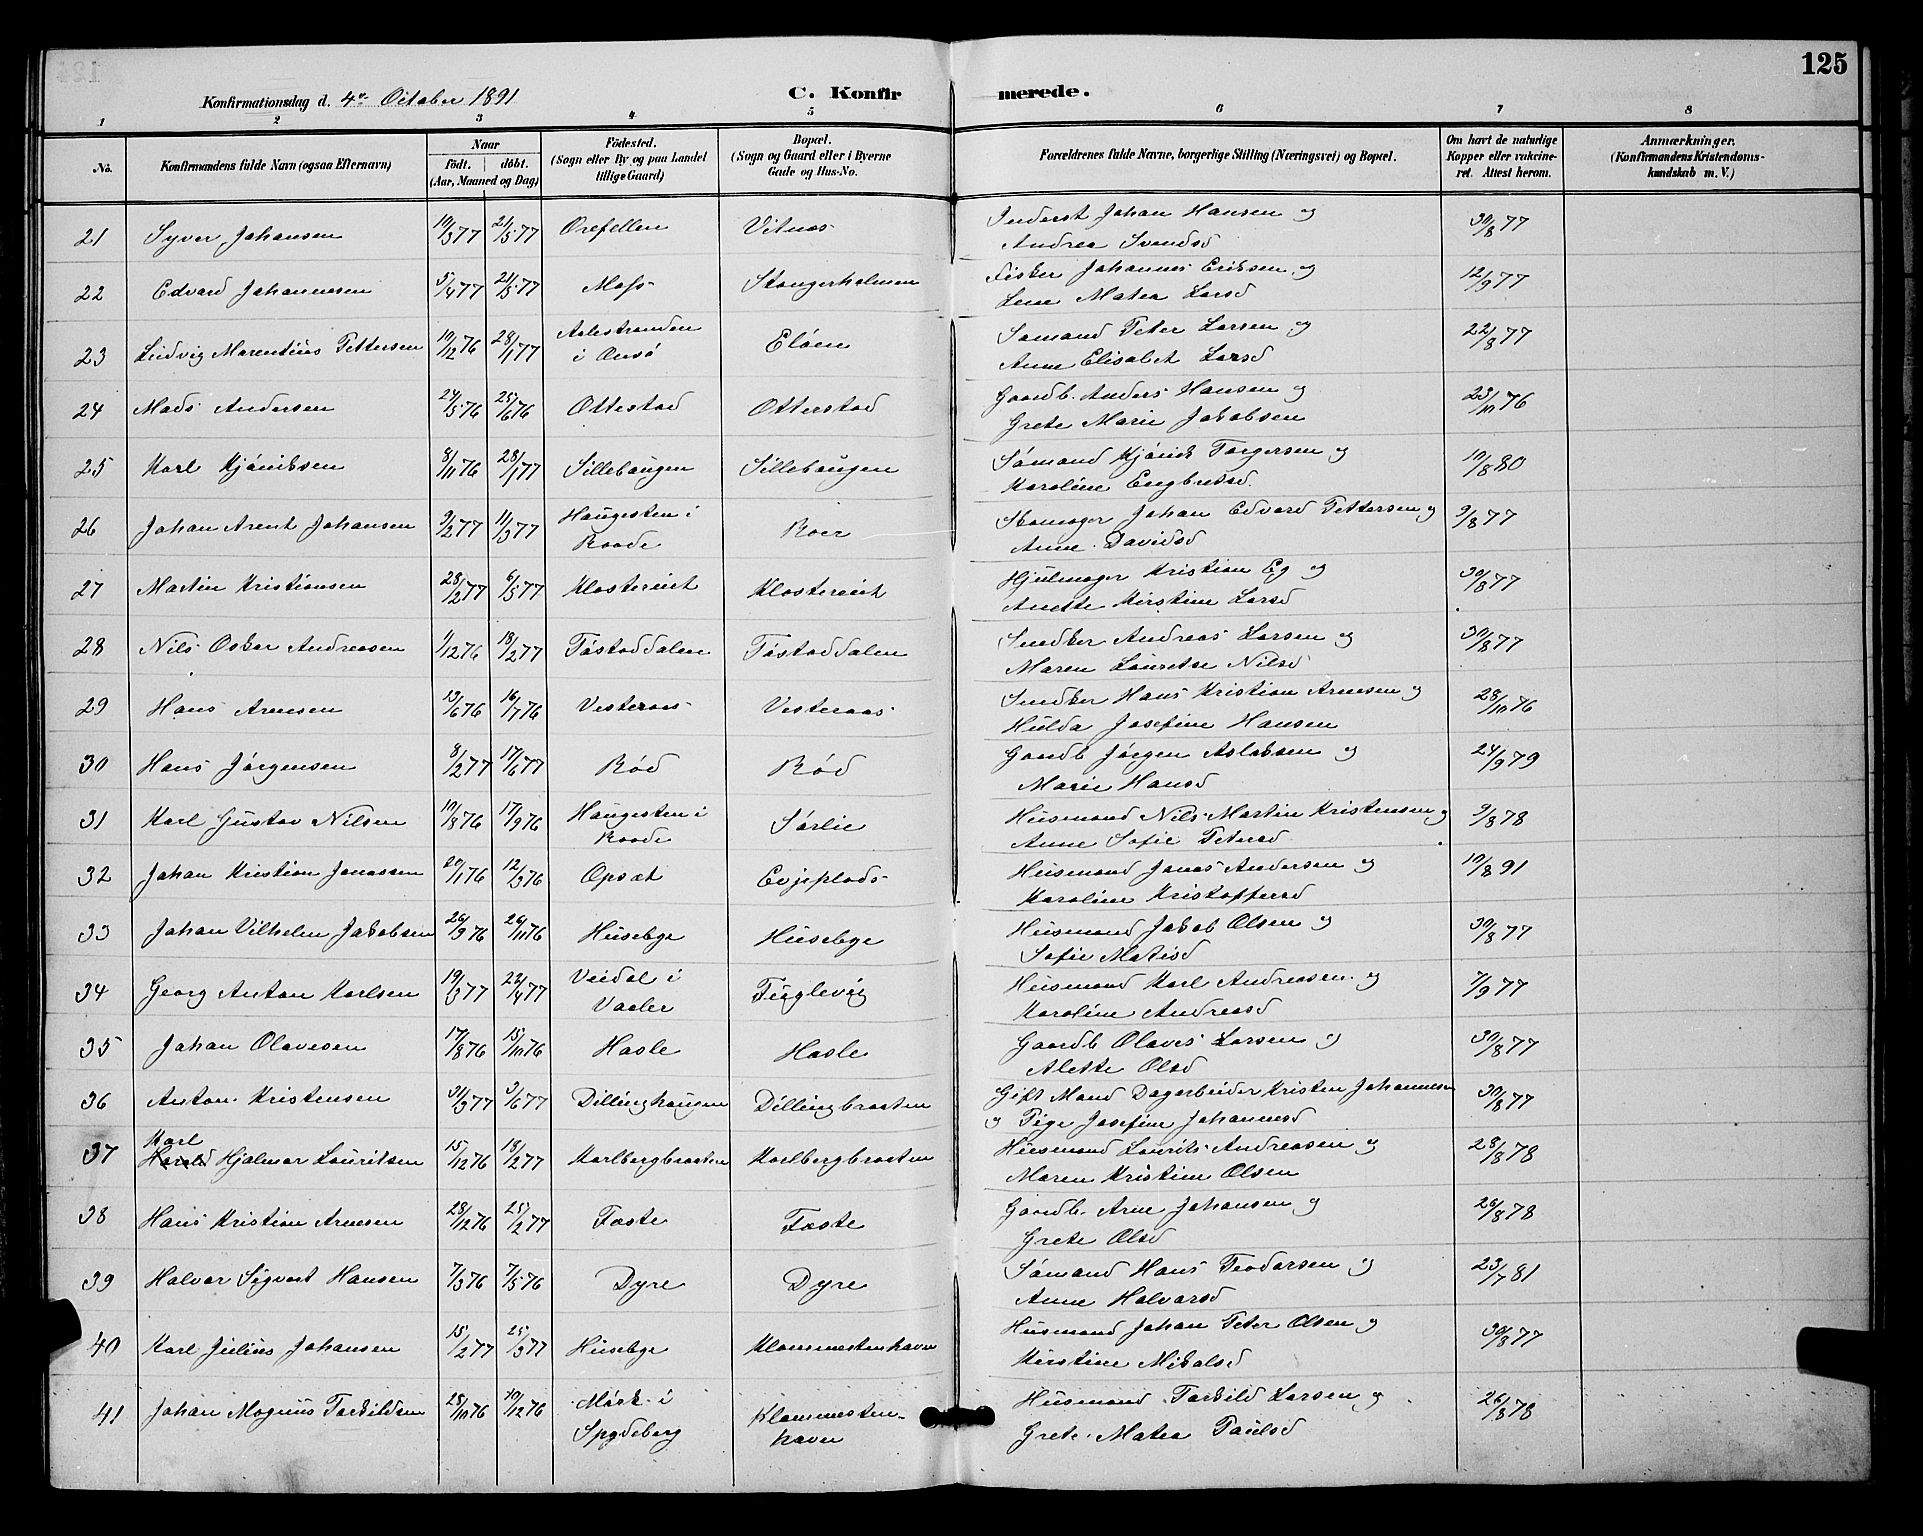 125
Konfirmationsdag d. 4de October 1891 C. Konfirmerede.
1 2 3 4 5 6 7 8
No. Konfirmandens fulde Navn (ogsaa Efternavn) Naar født. døbt. (Aar, Maaned og Dag) Födested. (Sogn eller By og paa Landet tillige Gaard) Bopæl. (Sogn og Gaard eller i Byerne Gade og Hus-No. Forældrenes fulde Navne, borgerlige Stilling (Næringsvei) og Bopæl. Om havt de naturlige Kopper eller vakcineret. Attest herom. Anmærkninger. (Konfirmandens Kristendomskundskab m. V.)
21 Syver Johansen 10/3 77 21/5 77 Orefellen Vitnæs Inderst Johan Hansen og 30/8 77
Andrea Svendsd
22 Edvard Johannesen 5/4 77 21/5 77 Moss Stangerholmen Fisker Johannes Eriksen og 12/9 77
Lene Matea Larsd
23 Ludvig Marentius Pettersen 10/12 76 28/1 77 Aalestranden i Onsö Elöen Sömand Peter Larsen og 22/8 77
Anne Elisabet Larsd
24 Mads Andersen 24/5 76 25/6 76 Ottestad Otterstad Gaardb. Anders Hansen og 23/10 76
Grete Marie Jakobsen
25 Karl Kjöniksen 8/11 76 28/1 77 Sillebaugen Sillebaugen Sömand Kjönik Torgersen og 10/8 80
Karoline Engbretsd.
26 Johan Arent Johansen 9/2 77 11/3 77 Haugesten i Raade Roer Skomager Johan Edvard Pettersen og 9/8 77
Anne Davidsd
27 Martin Kristiansen 28/2 77 6/5 77 Klostereiet Klostereiet Hjulmager Kristian Eg og 30/8 77
Anette Kirstine Larsd
28 Nils Oskar Andreasen 1/12 76 18/2 77 Töstaddalen Töstaddalen Snedker Andreas Larsen og 30/8 77
Maren Lauretse Nilsd
29 Hans Arnesen 13/6 76 16/7 76 Vesteraas Vesteraas Snedker Hans Kristian Arnesen og 28/10 76
Hulda Josefine Hansen
30 Hans Jörgensen 8/2 77 17/6 77 Röd Röd Gaardb Jörgen Aslaksen og 24/9 79
Marie Hansd
31 Karl Gustav Nilsen 10/8 76 17/9 76 Haugesten i Raade Sörlie Husmand Nils Martin Kristensen og 9/8 78
Anne Sofie Petersd
32 Johan Kristian Jonassen 20/1 76 12/3 76 Opsæt Evjeplads Husmand Jonas Andersen og 10/8 91
Karoline Kristoffersd
33 Johan Vilhelm Jakobsen 26/9 76 26/11 76 Husebye Husebye Husmand Jakob Olsen og 30/8 77
Sofie Matisd
34 Georg Anton Karlsen 19/3 77 22/4 77 Veidal i Vaaler Fuglevig Husmand Karl Andreasen og 7/9 77
Karoline Andreasd
35 Johan Olavesen 17/8 76 15/10 76 Hasle Hasle Gaardb Olaves Larsen og 30/8 77
Alette Olsd
36 Anton Kristensen 31/3 77 3/6 77 Dillinghaugen Dillingbraaten Gift Mand Dagarbeider Kristen Johannesen 30/8 77
og Pige Josefine Johannesd
37 Karl Hjalmar Lauritsen 15/12 76 18/2 77 Karlbergbraaten Karlbergbraaten Husmand Laurits Andreasen og 28/8 78
Maren Kristine Olsen
38 Hans Kristian Arnesen 28/12 76 25/2 77 Foste Foste Gaardb. Arne Johansen og 26/8 78
Grete Olsd
39 Halvar Sigvart Hansen 7/3 76 7/5 76 Dyre Dyre Sömand Hans Teodorsen og 23/7 81
Anne Halvarsd
40 Karl Julius Johansen 15/2 77 25/3 77 Husebye Klommestenhaven Husmand Johan Peter Olsen og 30/8 77
Kirstine Mikalsd
41 Johan Magnus Torkildsen 28/10 76 10/12 76 Mörk i Spydeberg Klommestenhaven Husmand Torkild Larsen og 26/8 78
Grete Matea Paulsd